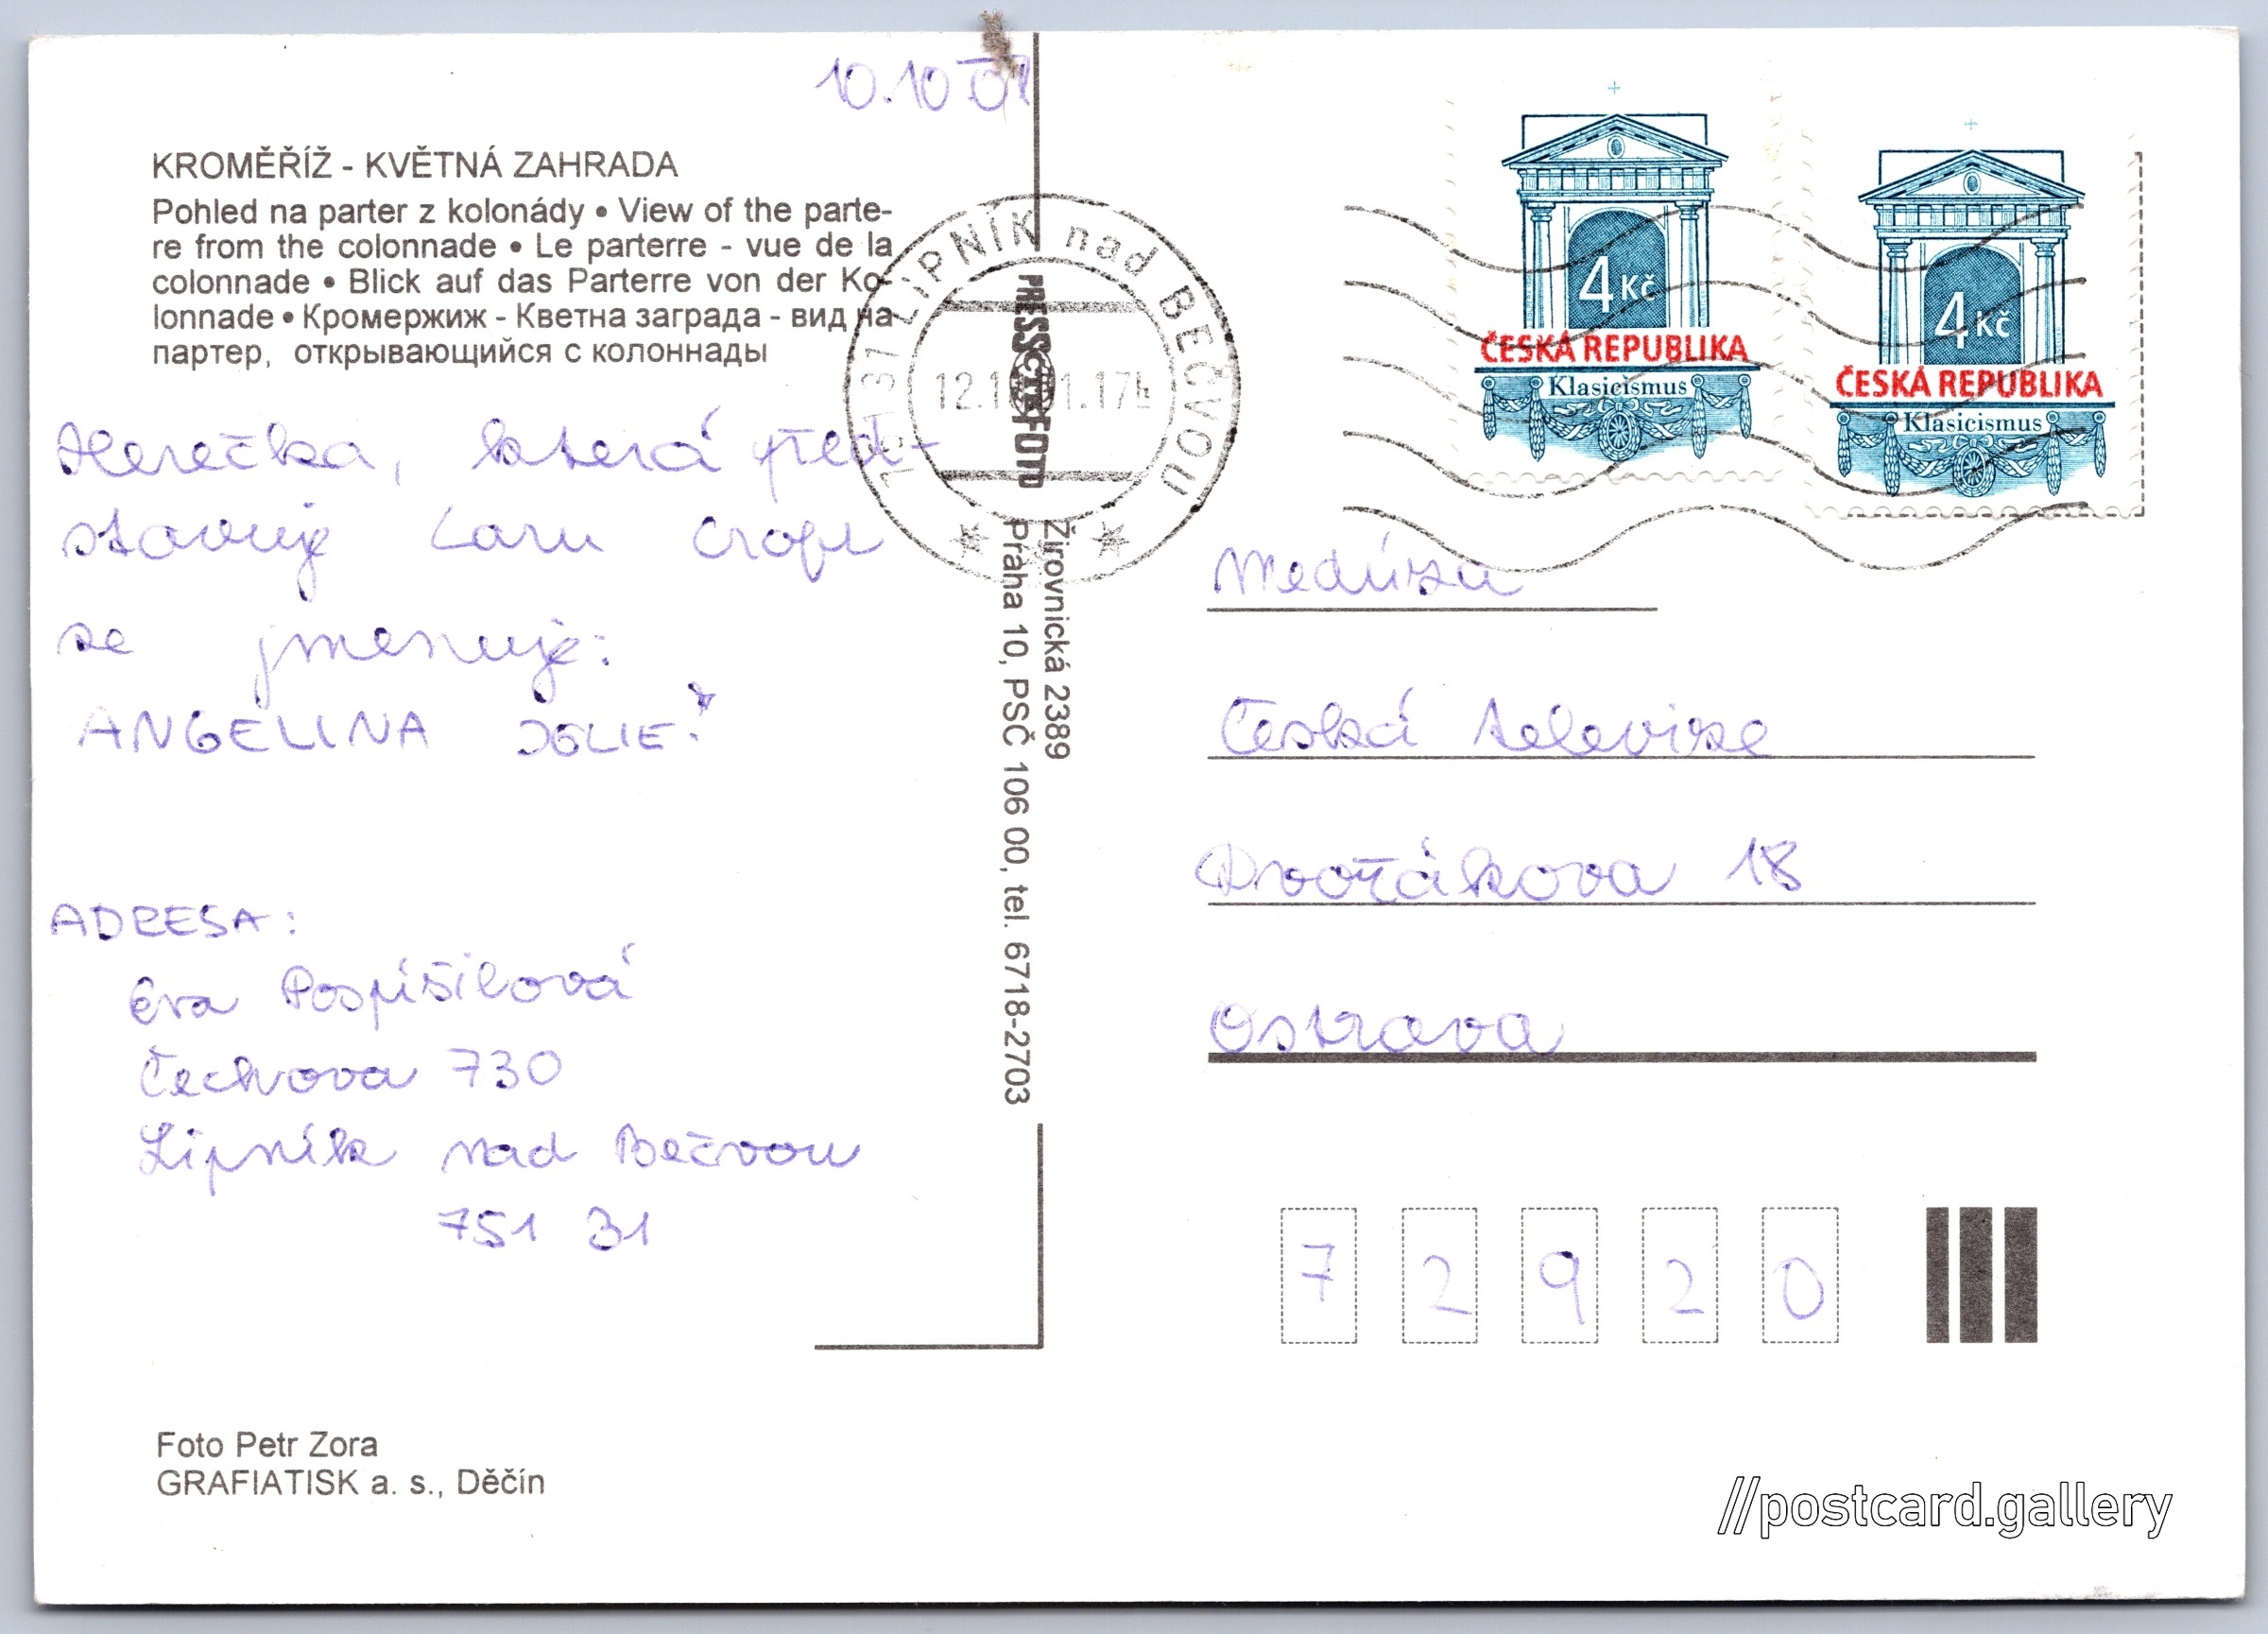 10.10 01
KROMĚŘÍŽ - KVĚTNÁ ZAHRADA
Pohled na parter z kolonády • View of the parte-
re from the colonnade • Le parterre - vue de la
colonnade • Blick auf das Parterre von der Ko-
lonnade • Кромержиж - Кветна заграда - вид на
партер, открывающийся с колоннады
Herečka, která před-
stavuje Laru Croft
se jmenuje:
ANGELINA JOLIE!
ADRESA:
Eva Pospíšilová
Čechova 730
Lipník nad Bečvou
751 31
Foto Petr Zora
GRAFIATISK a. s., Děčín
PRESSFOTO
Žirovnická 2389
Praha 10, PSČ 106 00, tel. 6718-2703
751 31 LIPNÍK nad BEČVOU
4 Kč
ČESKÁ REPUBLIKA
Klasicismus
4 Kč
ČESKÁ REPUBLIKA
Klasicismus
Medúza
Česká televize
Dvořákova 18
Ostrava
7 2 9 2 0
//postcard.gallery